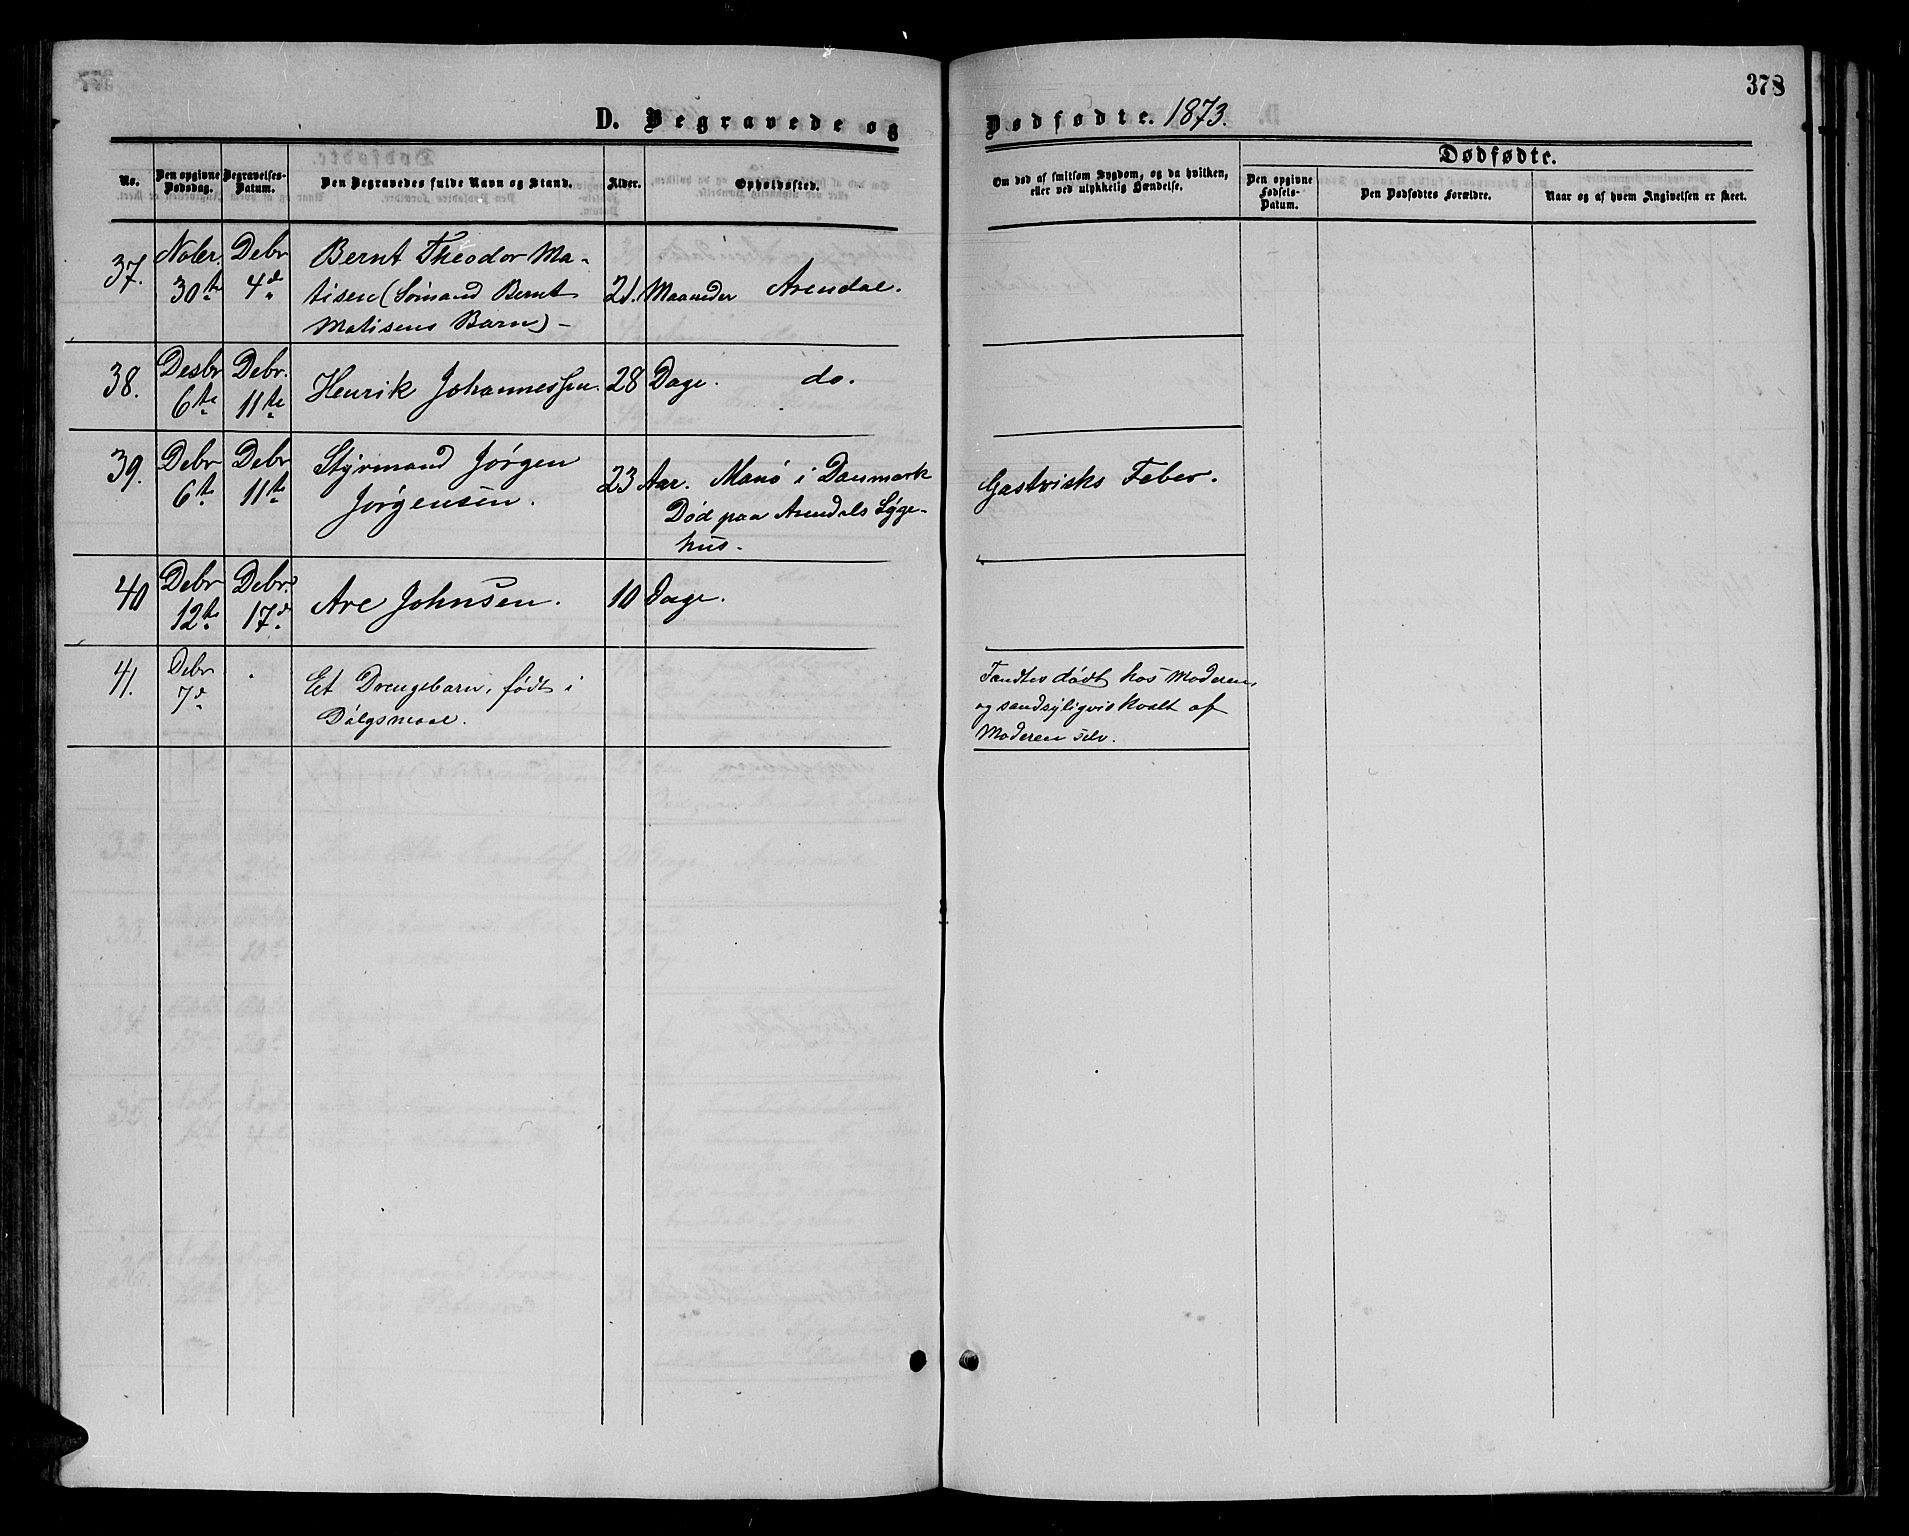 378
D. Begravede og Dødfødte. 1873.
No.
Den opgivne Dødsdag.
Begravelses-Datum.
Den Begravedes fulde Navn og Stand.
Alder.
Opholdssted.
Om død af smitsom Sygdom, og da hvilken,
eller ved ulykkelig Hændelse.
Dødfødte.
Den opgivne Fødsels-Datum.
Den Dødfødtes Forældre.
Naar og af hvem Angivelsen er skeet.
37. Nober 30te Debr 4de Bernt Theodor Ma-
tisen (Sømand Bernt 21. Maaneder Arendal.
Matisens Barn) -
38. Desbr 6te Debr. 11te Henrik Johannessen. 28 Dage. do.
39. Debr 6te Debr 11te Styrmand Jørgen
Jørgensen. 23 Aar. Manø i Danmark
Død paa Arendals Syge-
hus.
Gastrisks Feber.
40 Debr 12te Debr. 17de Are Johnsen. 10 Dage.
41. Debr 7de Et Drengebarn, født i
Dølgsmaal.
Fandtes dødt hos Moderen,
og sandsyligvis kvalt af
Moderen selv.